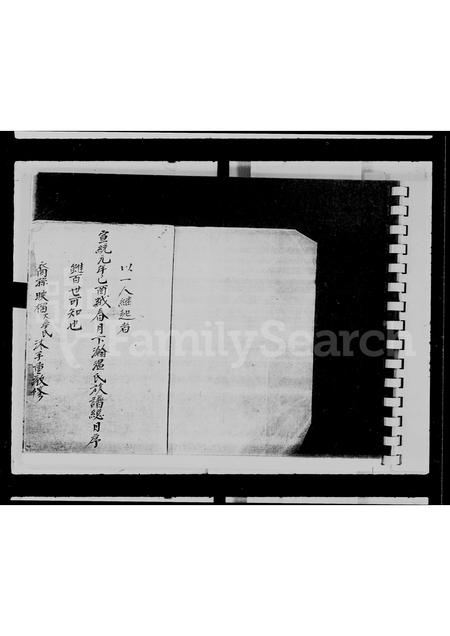 以一人繼起者
宣統元年己酉歲春月下瀚溫氏族譜總目序
雖百世可知也
裔孫 沐手重敬修
FamilySearch